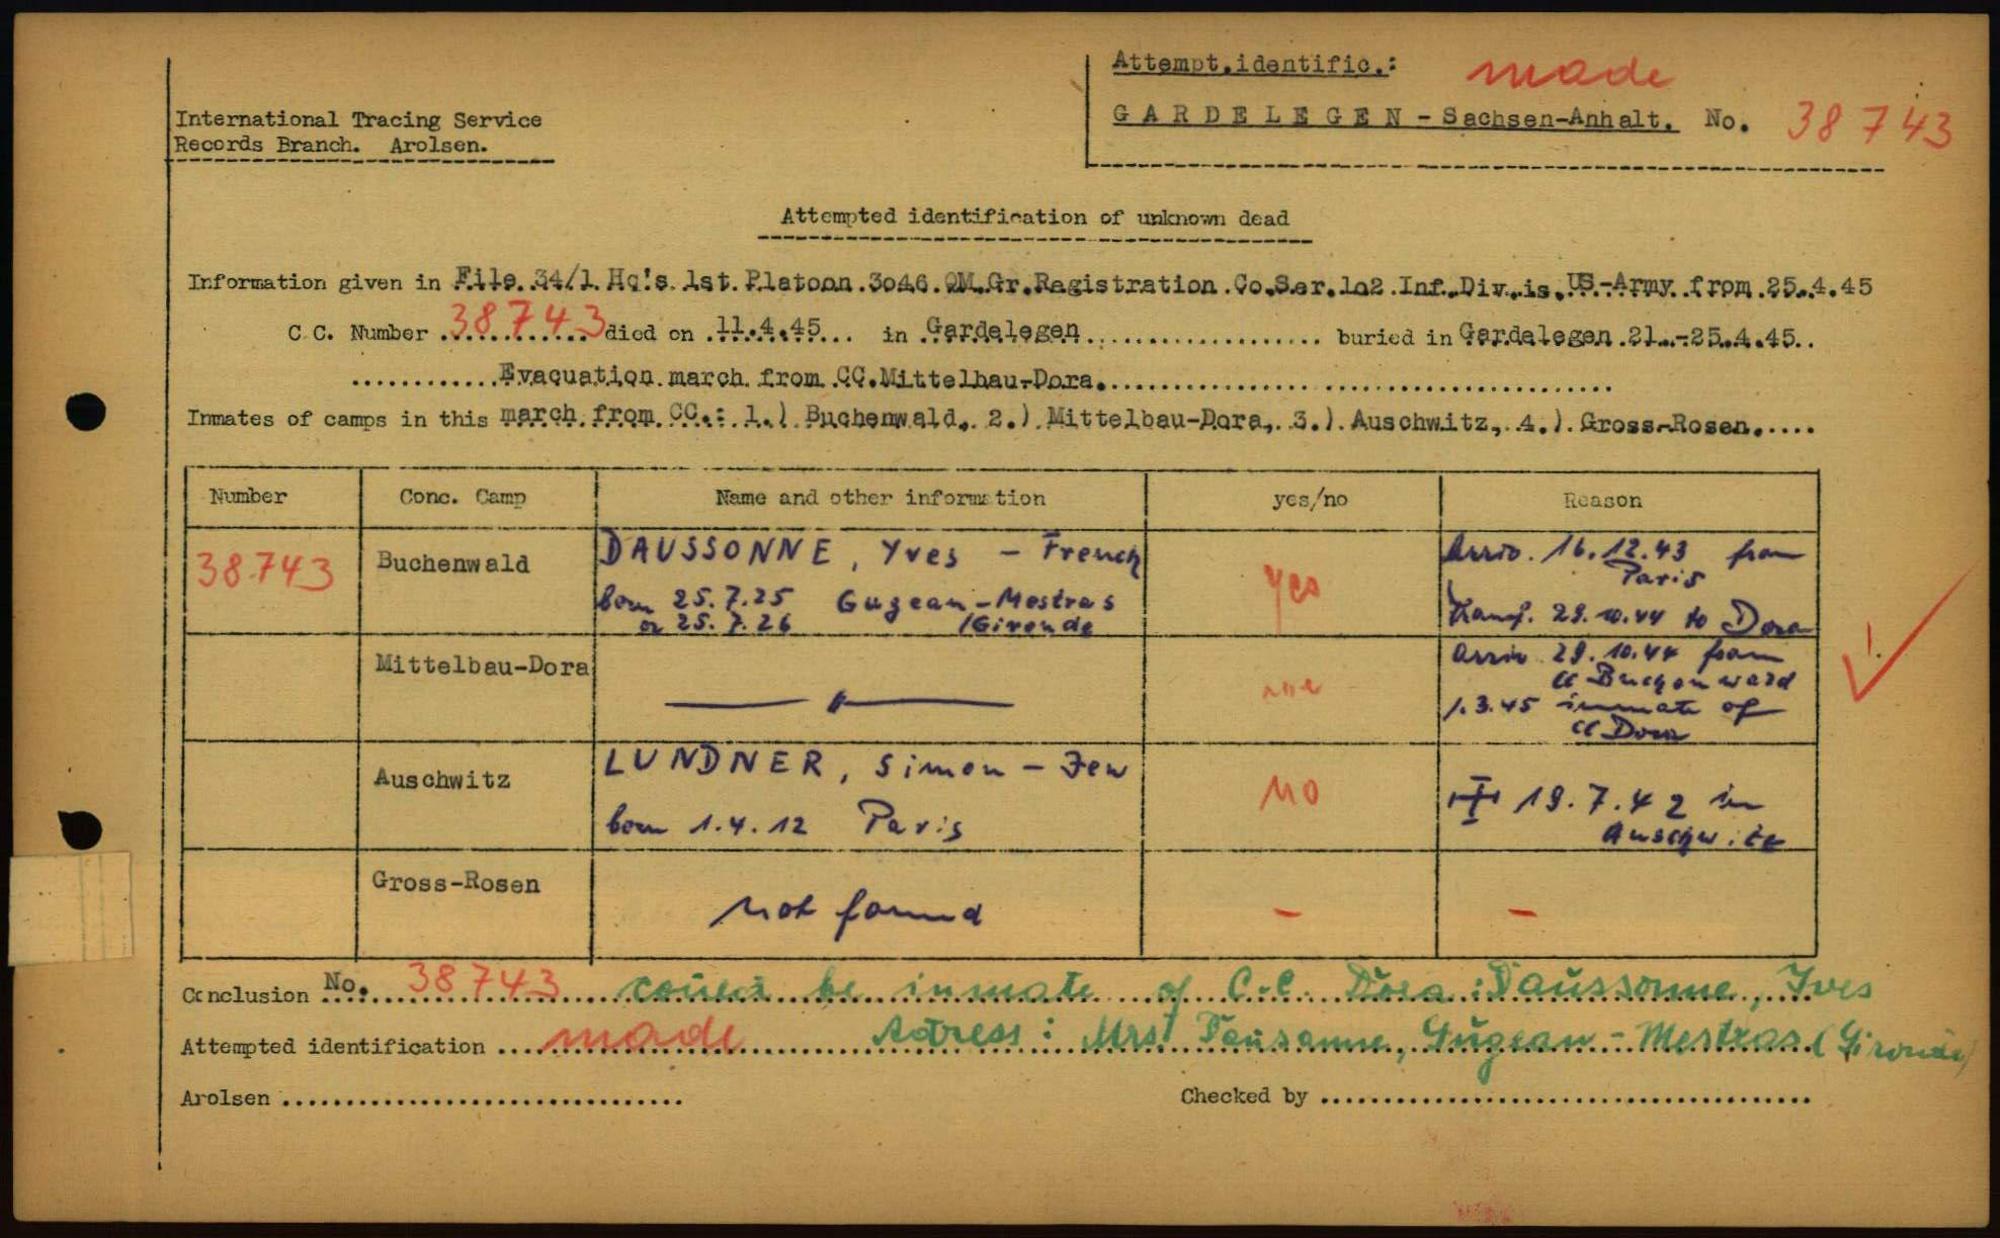 Attempt.identific.: made
GARDELEGEN - Sachsen-Anhalt. No. 38743
International Tracing Service
Records Branch. Arolsen.
Attempted identification of unknown dead
Information given in File.34/1.Hq's.1st.Platoon.3046.QM.Gr.Ragistration.Co.Ser.1o2.Inf.Div.is.US-Army.from.25.4.45
C.C. Number 38743 died on 11.4.45 in Gardelegen buried in Gardelegen.21.-25.4.45.
Evacuation march from CC.Mittelbau-Dora.
Inmates of camps in this march from CC.: 1.) Buchenwald, 2.) Mittelbau-Dora, 3.) Auschwitz, 4.) Gross-Rosen.
Number Conc. Camp Name and other information yes/no Reason
38743 Buchenwald DAUSSONNE, Yves - French yes Arriv. 16.12.43 from
Paris
born 25.7.25 Gugean-Mestras
or 25.7.26 (Gironde
Transf. 29.10.44 to Dora
Mittelbau-Dora — " — Arriv 29.10.44 from
CC Buchenwald
1.3.45 inmate of
CC Dora
Auschwitz LUNDNER, Simon - Jew no 19.7.42 in
born 1.4.12 Paris Auschwitz
Gross-Rosen not found - -
Conclusion No. 38743 could be inmate of C.C. Dora: Daussonne, Yves
Attempted identification made Adress: Mrs Dausanne, Gugean-Mestras (Gironde)
Arolsen Checked by